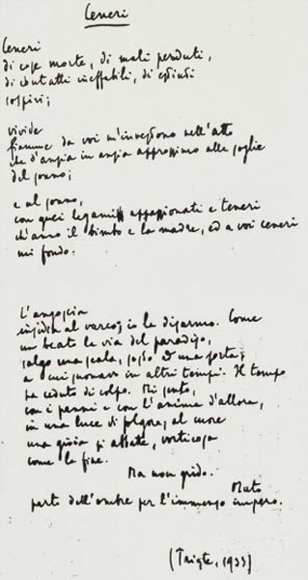 Ceneri
Ceneri
di cose morte, di mali perduti,
di contatti ineffabili, di
sospiri;
vivide
fiamme da voi m'investono nell'atto
che d'ansia in ansia approssimo alle soglie
del sonno;
e al sonno,
con quei legami appassionati e teneri
ch'anno il bimbo e la madre, ed a voi ceneri
mi fondo.
L'angoscia
insidia al varco; io la disarmo. Come
un beato la via del paradiso,
salgo una scala, sosto a una porta,
a cui sonavo in altri tempi. Il tempo
ha ceduto di colpo. Mi sento,
con i panni e con l'anima d'allora,
in una luce di folgore; al cuore
una gioia si abbatte, vorticosa
come la fine.
Ma non grido.
Muto
parto dell'ombre per l'immenso impero.
(Trieste, 1933)